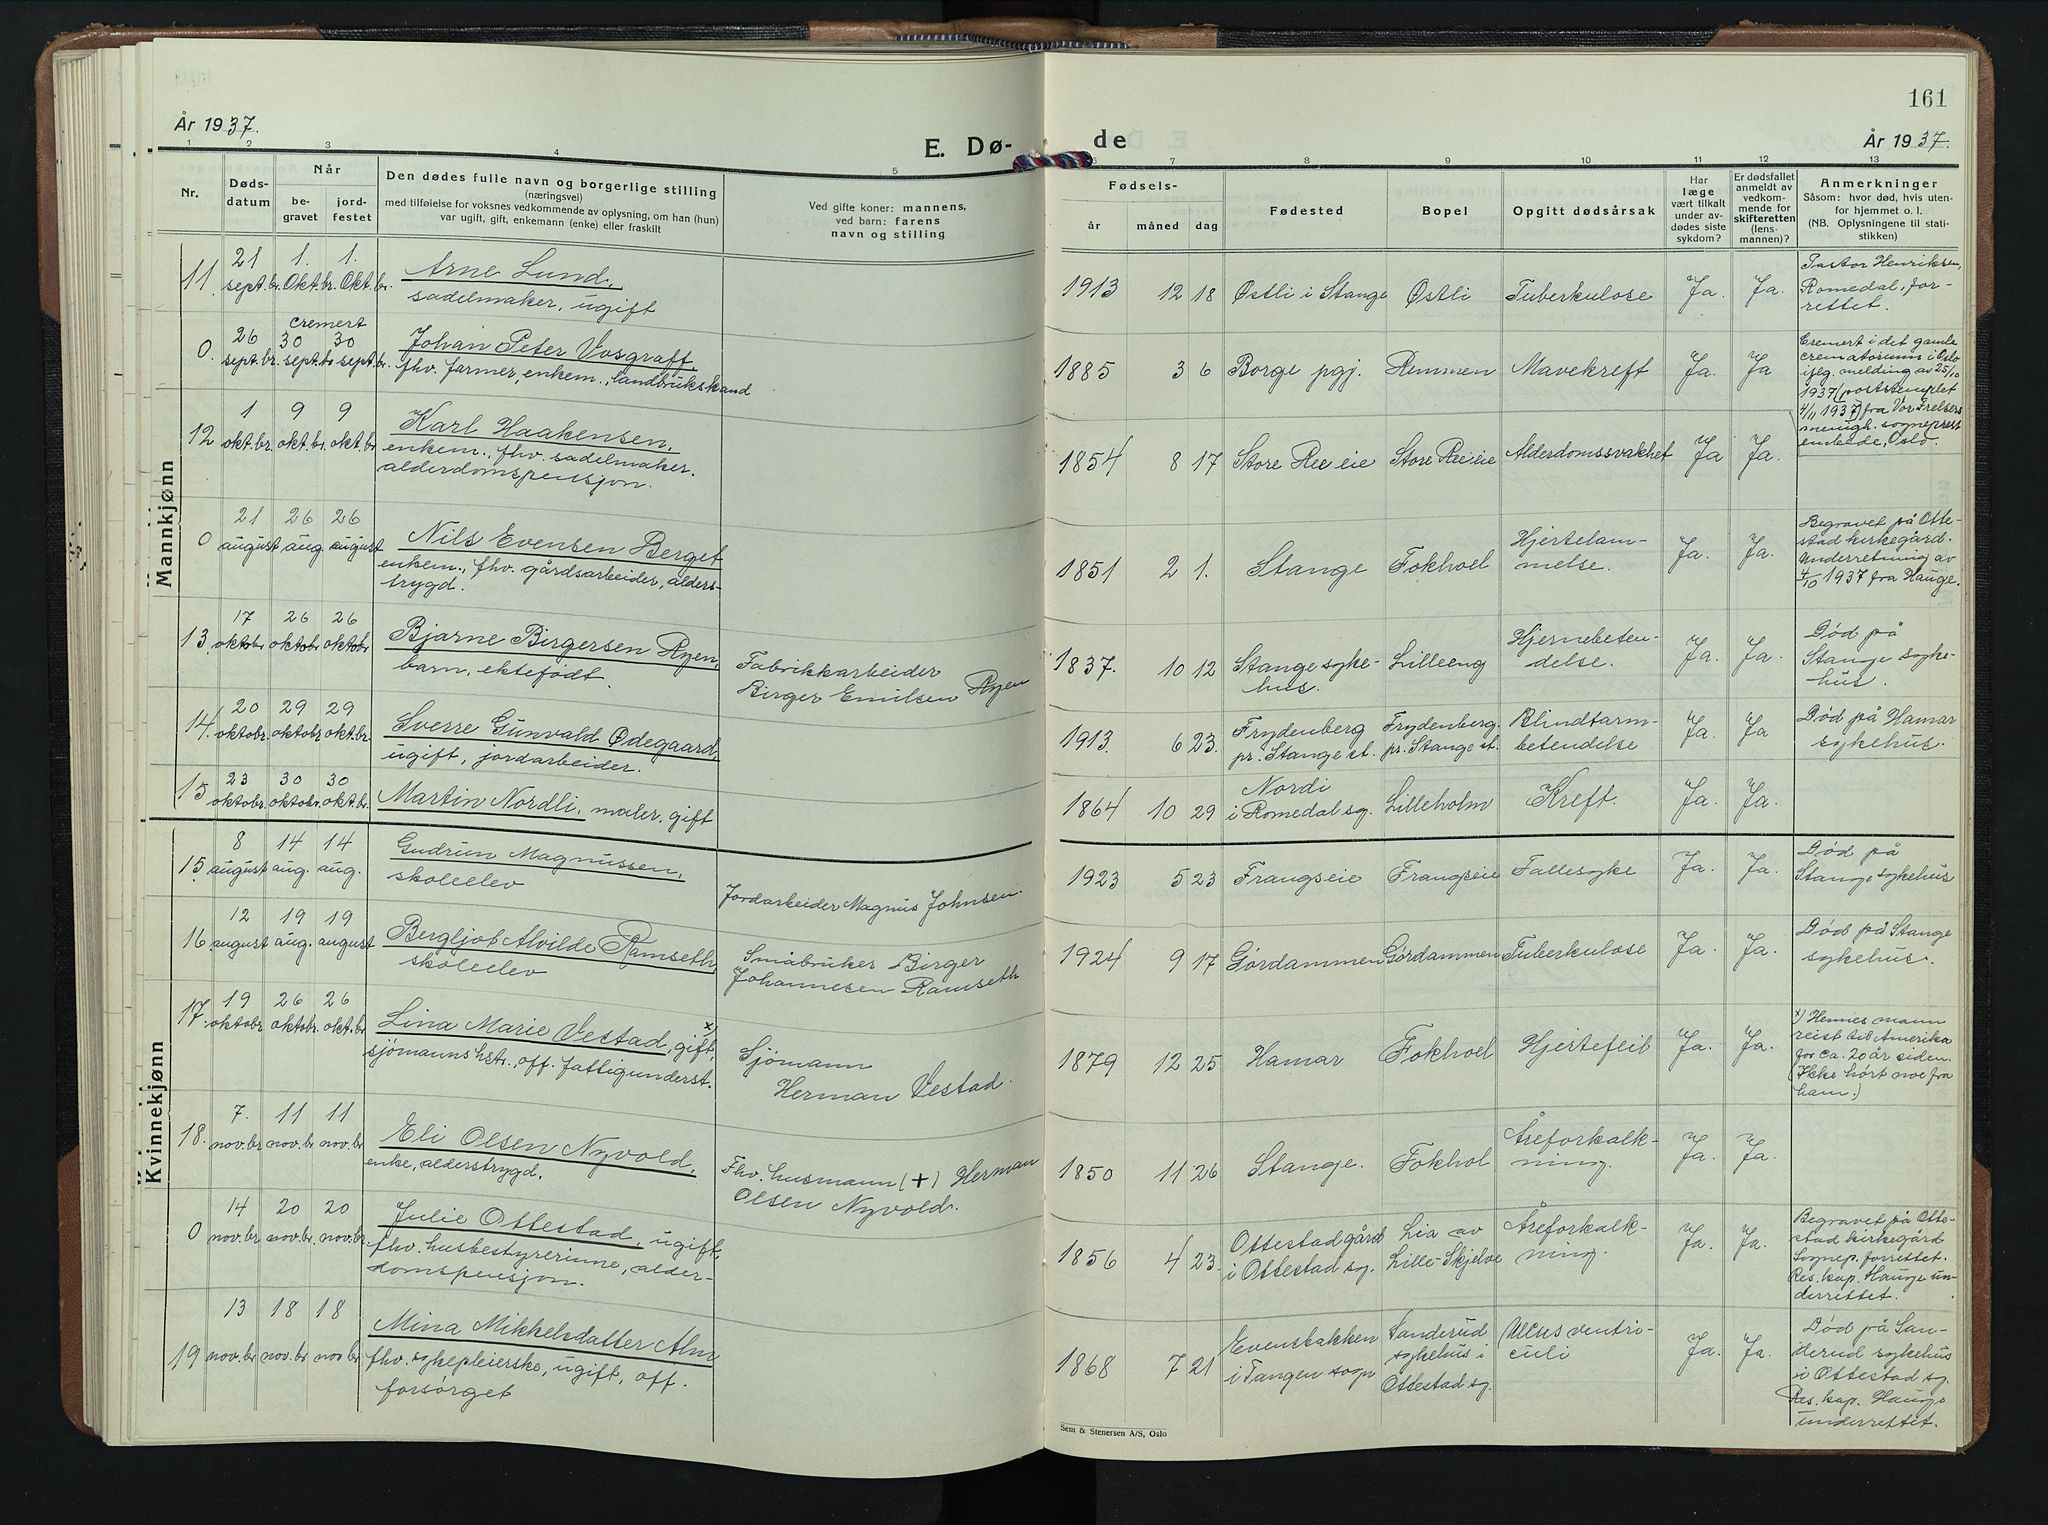 År 1937.
E. Dø-
1 2 3 4 5
Nr.
Døds-
datum
Når
be-
gravet
jord-
festet
Den dødes fulle navn og borgerlige stilling
(næringsvei)
med tilføielse for voksnes vedkommende av oplysning, om han (hun)
var ugift, gift, enkemann (enke) eller fraskilt
Ved gifte koner: mannens,
ved barn: farens
navn og stilling
Mannkjønn
11. 21 sept.br. 1. Okt.br. 1. Okt.br.
Arne Lund,
sadelmaker, ugift
cremert
0. 26 sept.br. 30 sept.br 30 sept.br.
Johan Peter Vosgraff,
fhv. farmer, enkem., landbrukskand
12 1 okt.br. 9 okt.br. 9 okt.br.
Karl Haakensen,
enkem., fhv. sadelmaker.
alderdomspensjon.
0 21 august 26 aug. 26 august
Nils Evensen Berget
enkem., fhv. gårdsarbeider, alders-
trygd.
13. 17 oktobr. 26 oktobr 26 oktobr.
Bjarne Birgersen Ryen,
barn, ektefødt.
Fabrikkarbeider
Birger Emilsen Ryen
14. 20 oktobr. 29 oktobr. 29 okt.br.
Sverre Gunvald Ødegaard,
ugift, jordarbeider.
15 23 oktobr. 30 oktobr. 30 okt.br.
Martin Nordli, maler, gift
Kvinnekjønn
15. 8 august 14 aug. 14 aug.
Gudrun Magnussen,
skoleelev
Jordarbeider Magnus Johnsen.
16. 12 august 19 aug. 19 august
Bergljot Alvilde Ramseth,
skoleelev
Småbruker Birger
Johannesen Ramseth
17. 19 oktobr. 26 oktobr. 26 okt.br.
Lina Marie Vestad, gift, x)
sjømanns hstr., off. fattigunderst.
Sjømann
Herman Vestad.
18. 7. nov.br 11 nov.br 11 nov.br
Eli Olsen Nyvold,
enke, alderstrygd.
Fhv. husmann (+) Herman
Olsen Nyvold.
0 14 nov.br 20 nov.br 20 nov.br
Julie Ottestad, ugift,
fhv. husbestyrerinne, alder-
domspensjon.
19 13 nov.br 18 nov.br 18 nov.br
Mina Mikkelsdatter Alm
fhv. sykepleierske, ugift, off.
forsørget
161
de
År 1937.
6 7 8 9 10 11 12 13
Fødsels-
år måned dag
Fødested
Bopel
Opgitt dødsårsak
Har
læge
vært tilkalt
under av-
dødes siste
sykdom?
Er dødsfallet
anmeldt av
vedkom-
mende for
skifteretten
(lens-
mannen)?
Anmerkninger
Såsom: hvor død, hvis uten-
for hjemmet o. l.
(NB. Oplysningene til stati-
stikken)
1913 12 18 Østli i Stange Østli Tuberkulose Ja. Ja.
Pastor Henriksen,
Romedal, for-
rettet.
1885 3 6 Borge pgj. Remmen Mavekreft Ja. Ja
Cremert i det gamle
crematorium i Oslo
ifølg. melding av 25/10
1937 (poststemplet
4/11 1937) fra Vor Frelsers
menigh. sogneprest
embede, Oslo.
1854 8 17 Store Ree eie Store Ree eie Alderdomssvakhet Ja Ja.
1851 2 1. Stange Fokhoel Hjertelam-
melse. Ja. Ja.
Begravet på Otte-
stad kirkegård.
Underretning av
4/10 1937 fra Hauge.
1837. 10 12 Stange syke-
hus. Lilleeng Hjernebeten-
delse. Ja. Ja.
Død på
Stange syke-
hus.
1913. 6 23. Frydenberg
pr. Stange st. Frydenberg.
pr. Stange st. Blindtarm-
betendelse Ja. Ja
Død på Hamar
sykehus.
1864 10 29 Nordi
i Romedal sg. Lilleholm Kreft. Ja. Ja.
1923 5 23 Frangseie Frangseie Fallesyke Ja. Ja.
Død på
Stange sykehus
1924 9 17 Gørdammen Gørdammen Tuberkulose Ja. Ja.
Død på Stange
sykehus.
1879 12 25 Hamar Fokhoel Hjertefeil Ja. Ja.
x) Hennes mann
reist til Amerika
for ca. 20 år siden.
(Ikke hørt noe fra
ham.)
1850 11 26 Stange. Fokhol Åreforkalk-
ning. Ja. Ja.
1856 4 23. Ottestad gård
i Ottestad sg. Lia av
Lille-Skjelve Åreforkalk-
ning. Ja. Ja.
Begravet på Otte-
stad kirkegård
Sognep. forrettet.
Res. kap. Hauge un-
derrettet.
1868 7 21 Evensbakken
i Tangen sogn Sanderud
sykehus i
Ottestad sg. Ulcus ventri-
culi Ja. Ja.
Død på San-
derud sykehus
i Ottestad sg.
Res. kap. Hauge
underrettet.
Sem & Stenersen A/S, Oslo